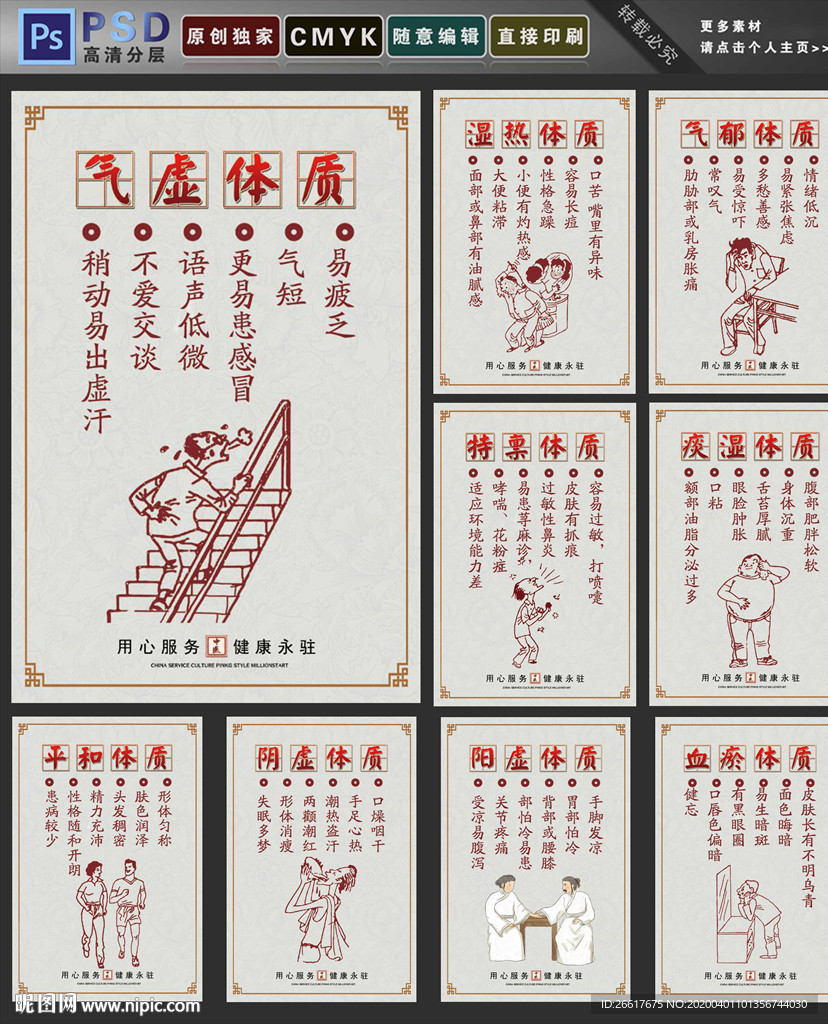 Ps
PSD
高清分层
原创独家
CMYK
随意编辑
直接印刷
转载必究
更多素材
请点击个人主页>>
气虚体质
易疲乏
气短
更易患感冒
语声低微
不爱交谈
稍动易出虚汗
用心服务 中医 健康永驻
CHINA SERVICE CULTURE PINKG STYLE MILLIONSTART
湿热体质
口苦嘴里有异味
容易长痘
性格急躁
小便有灼热感
大便粘滞
面部或鼻部有油腻感
用心服务 健康永驻
CHINA SERVICE CULTURE PINKG STYLE MILLIONSTART
气郁体质
情绪低沉
易紧张焦虑
多愁善感
易受惊吓
常叹气
肋胁部或乳房胀痛
用心服务 健康永驻
CHINA SERVICE CULTURE PINKG STYLE MILLIONSTART
特禀体质
容易过敏，打喷嚏
皮肤有抓痕
过敏性鼻炎
易患荨麻诊，
哮喘、花粉症
适应环境能力差
用心服务 健康永驻
CHINA SERVICE CULTURE PINKG STYLE MILLIONSTART
痰湿体质
腹部肥胖松软
身体沉重
舌苔厚腻
眼脸肿胀
口粘
额部油脂分泌过多
用心服务 健康永驻
CHINA SERVICE CULTURE PINKG STYLE MILLIONSTART
平和体质
形体匀称
肤色润泽
头发稠密
精力充沛
性格随和开朗
患病较少
用心服务 健康永驻
CHINA SERVICE CULTURE PINKG STYLE MILLIONSTART
阴虚体质
口燥咽干
手足心热
潮热盗汗
两颧潮红
形体消瘦
失眠多梦
用心服务 健康永驻
CHINA SERVICE CULTURE PINKG STYLE MILLIONSTART
阳虚体质
手脚发凉
胃部怕冷
背部或腰膝
部怕冷易患
关节疼痛
受凉易腹泻
用心服务 健康永驻
CHINA SERVICE CULTURE PINKG STYLE MILLIONSTART
血瘀体质
皮肤长有不明乌青
面色晦暗
易生暗斑
有黑眼圈
口唇色偏暗
健忘
用心服务 健康永驻
CHINA SERVICE CULTURE PINKG STYLE MILLIONSTART
昵图网 www.nipic.com
ID:26617675 NO:20200401101356744030